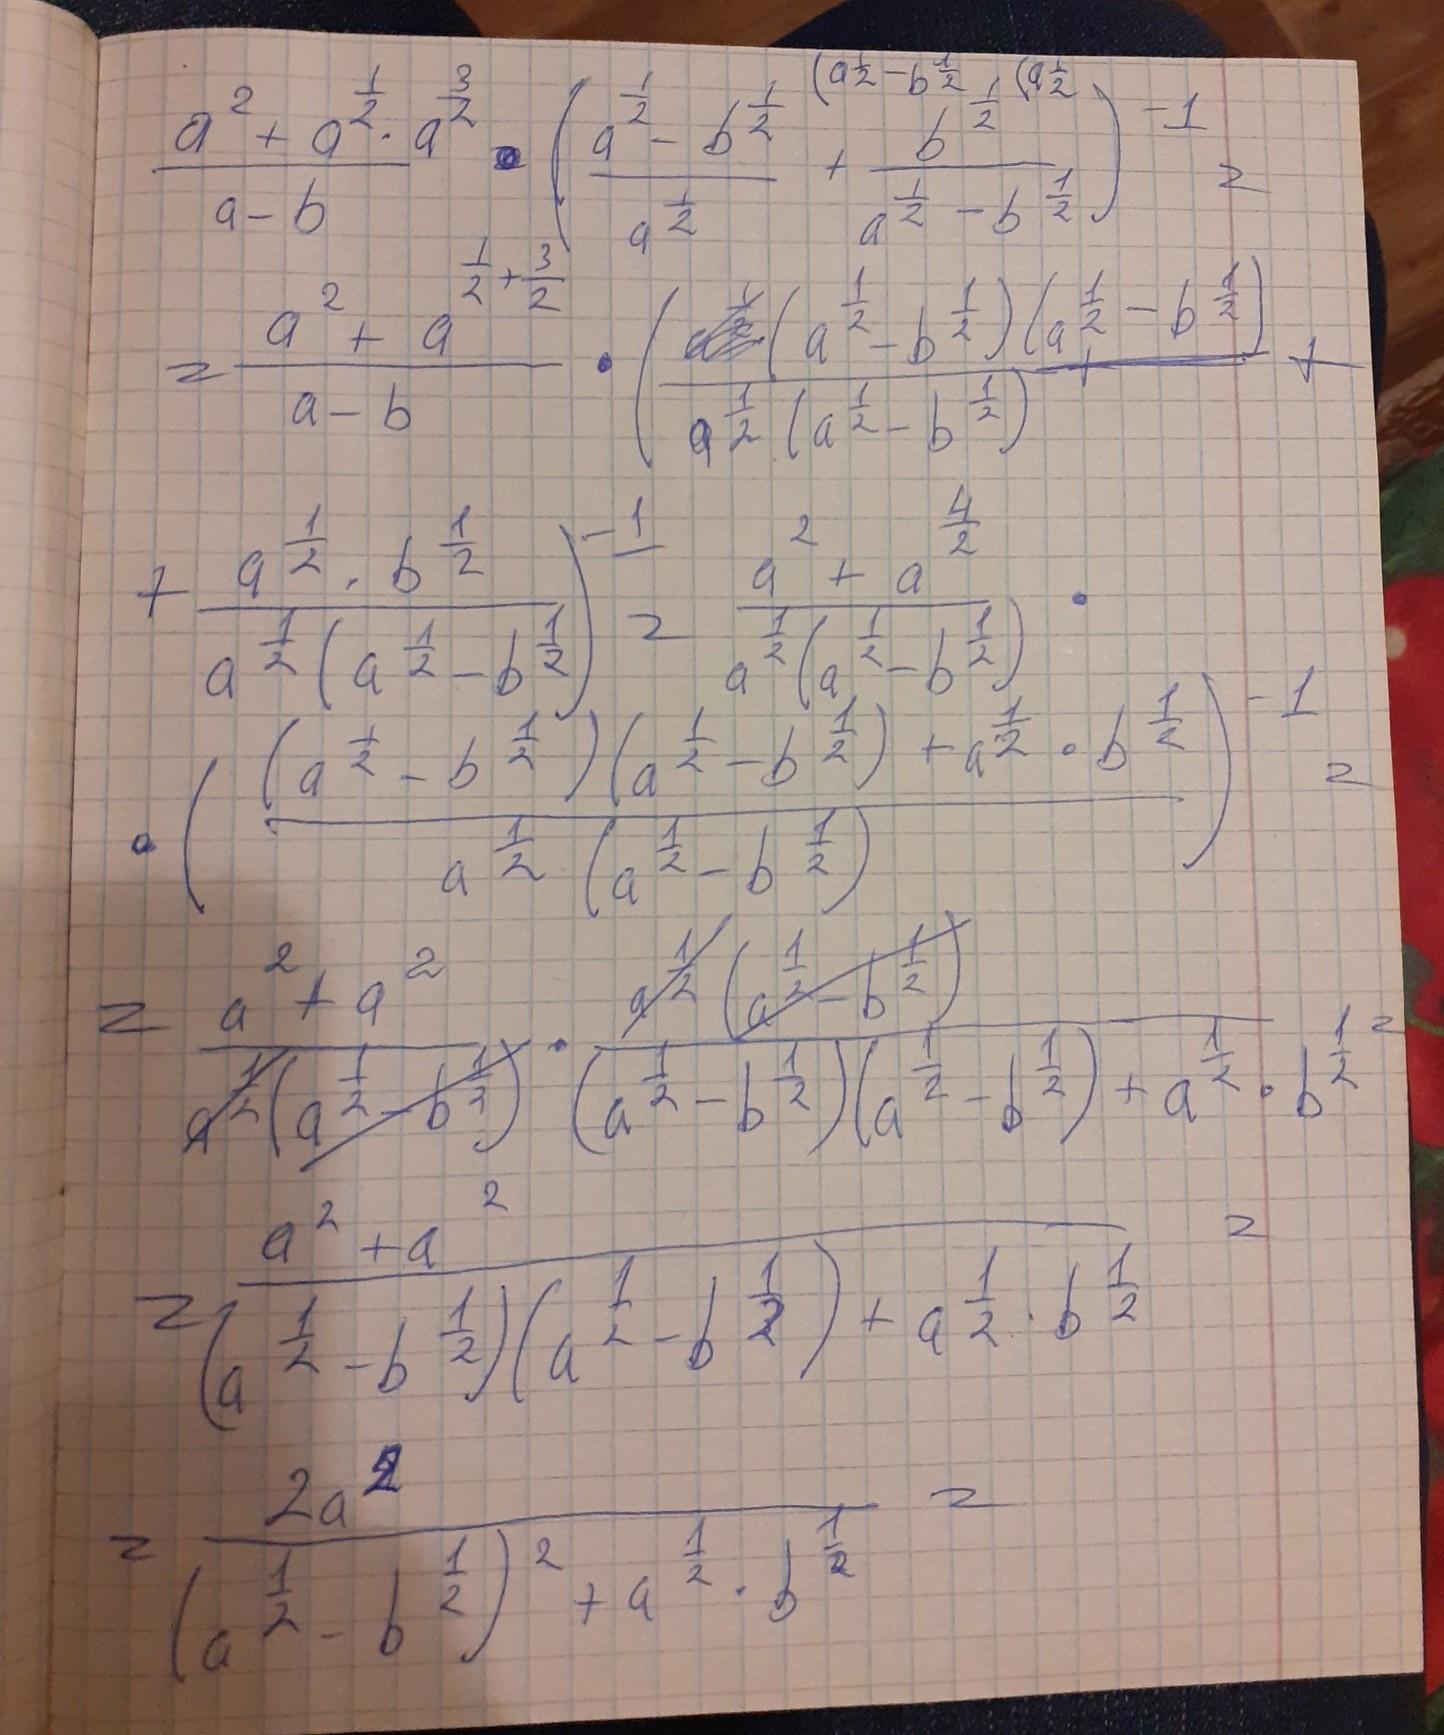 (a^{1/2} - b^{1/2} (a^{1/2}
\frac{a^2 + a^{1/2} · a^{3/2}}{a - b} · (\frac{a^{1/2} - b^{1/2}}{a^{1/2}} + \frac{b^{1/2}}{a^{1/2} - b^{1/2}})^{-1} =
= \frac{a^2 + a^{1/2 + 3/2}}{a - b} · (\frac{(a^{1/2} - b^{1/2})(a^{1/2} - b^{1/2})}{a^{1/2}(a^{1/2} - b^{1/2})} +
+ \frac{a^{1/2} · b^{1/2}}{a^{1/2}(a^{1/2} - b^{1/2})})^{-1} = \frac{a^2 + a^{4/2}}{a^{1/2}(a^{1/2} - b^{1/2})} ·
· (\frac{(a^{1/2} - b^{1/2})(a^{1/2} - b^{1/2}) + a^{1/2} · b^{1/2}}{a^{1/2} · (a^{1/2} - b^{1/2})})^{-1} =
= \frac{a^2 + a^2}{a^{1/2}(a^{1/2} - b^{1/2})} · \frac{a^{1/2}(a^{1/2} - b^{1/2})}{(a^{1/2} - b^{1/2})(a^{1/2} - b^{1/2}) + a^{1/2} · b^{1/2}} =
= \frac{a^2 + a^2}{(a^{1/2} - b^{1/2})(a^{1/2} - b^{1/2}) + a^{1/2} · b^{1/2}} =
= \frac{2a^2}{(a^{1/2} - b^{1/2})^2 + a^{1/2} · b^{1/2}} =